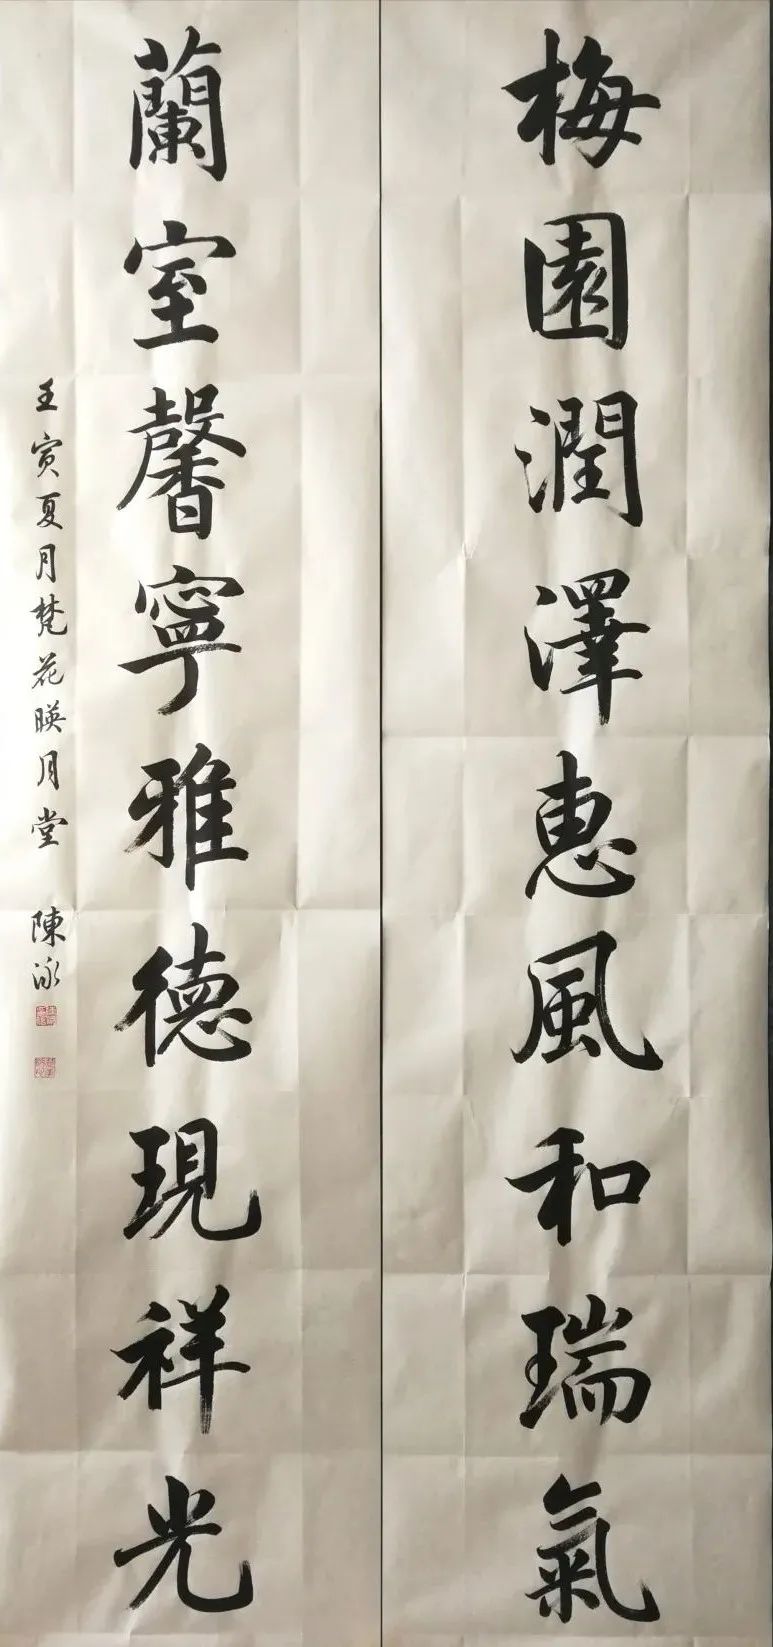 梅園潤澤惠風和瑞氣
蘭室馨寧雅德現祥光
壬寅夏月梵花暎月堂 陳泳